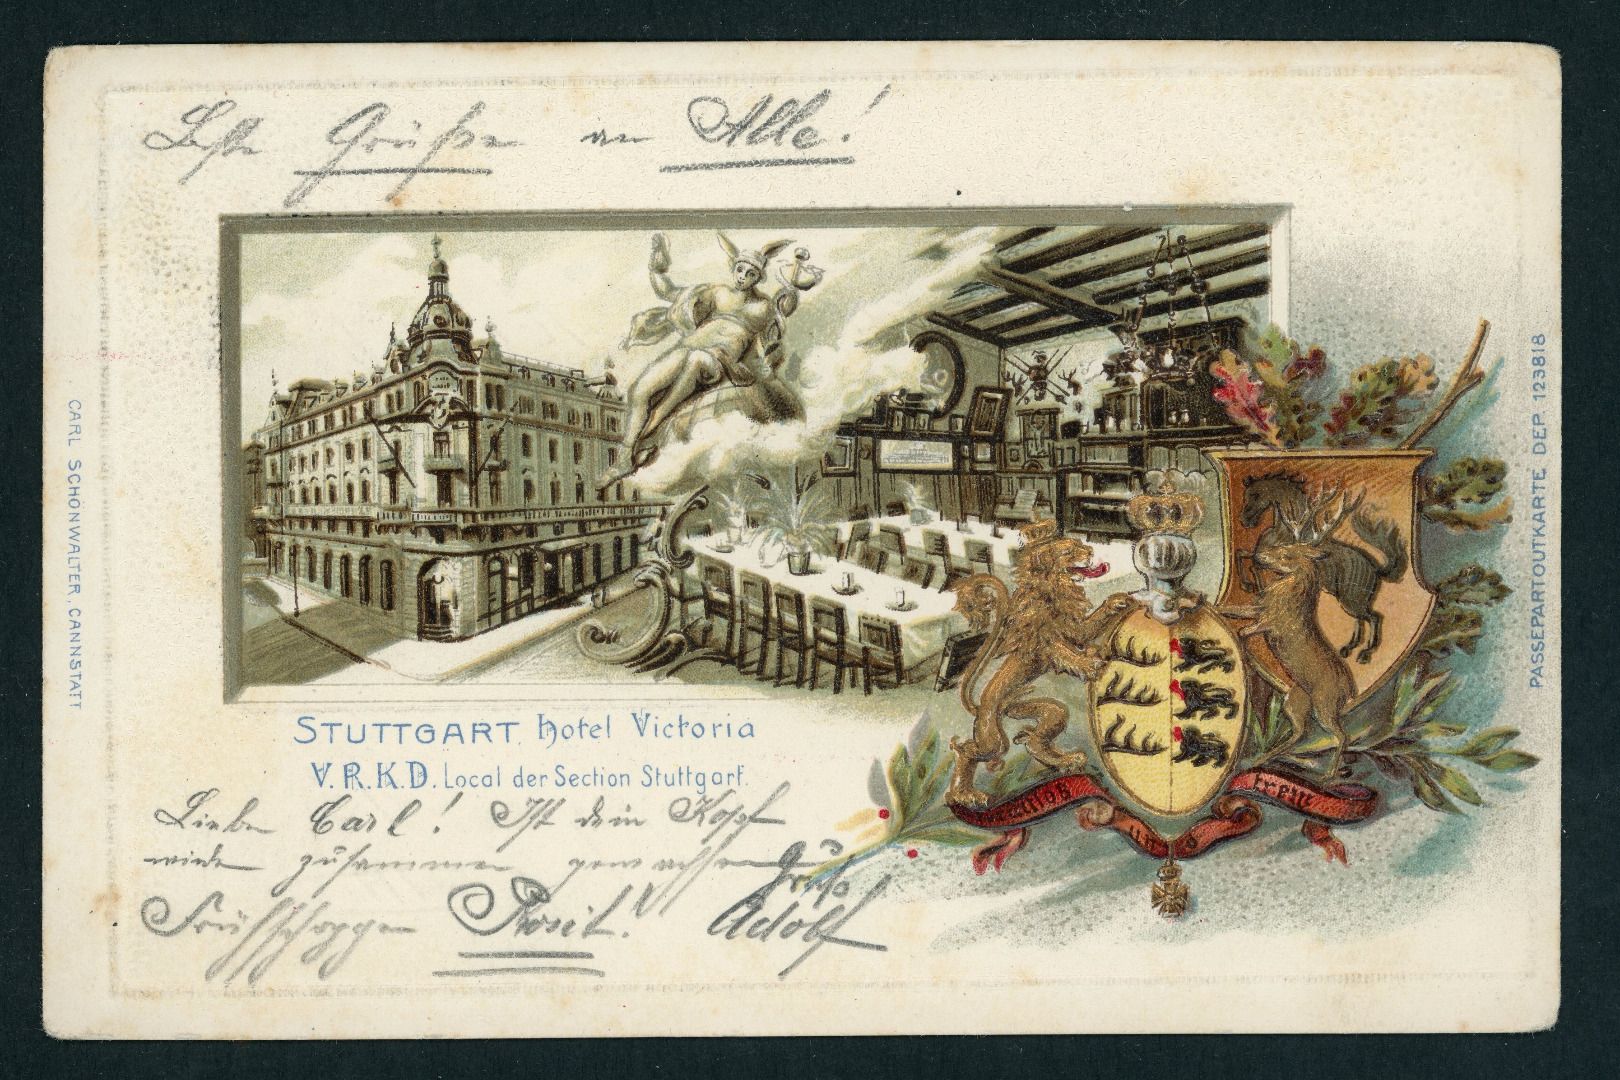 Beste Grüße an Alle!
STUTTGART. Hotel Victoria
V.R.K.D. Local der Section Stuttgart.
Lieber Carl! Ist dein Kopf
wieder zusammen gewachsen
Gruß
Frühschoppen Prosit! Adolf
CARL SCHÖNWALTER, CANNSTATT
PASSEPARTOUTKARTE DEP. 123818
Furchtlos
und
trew